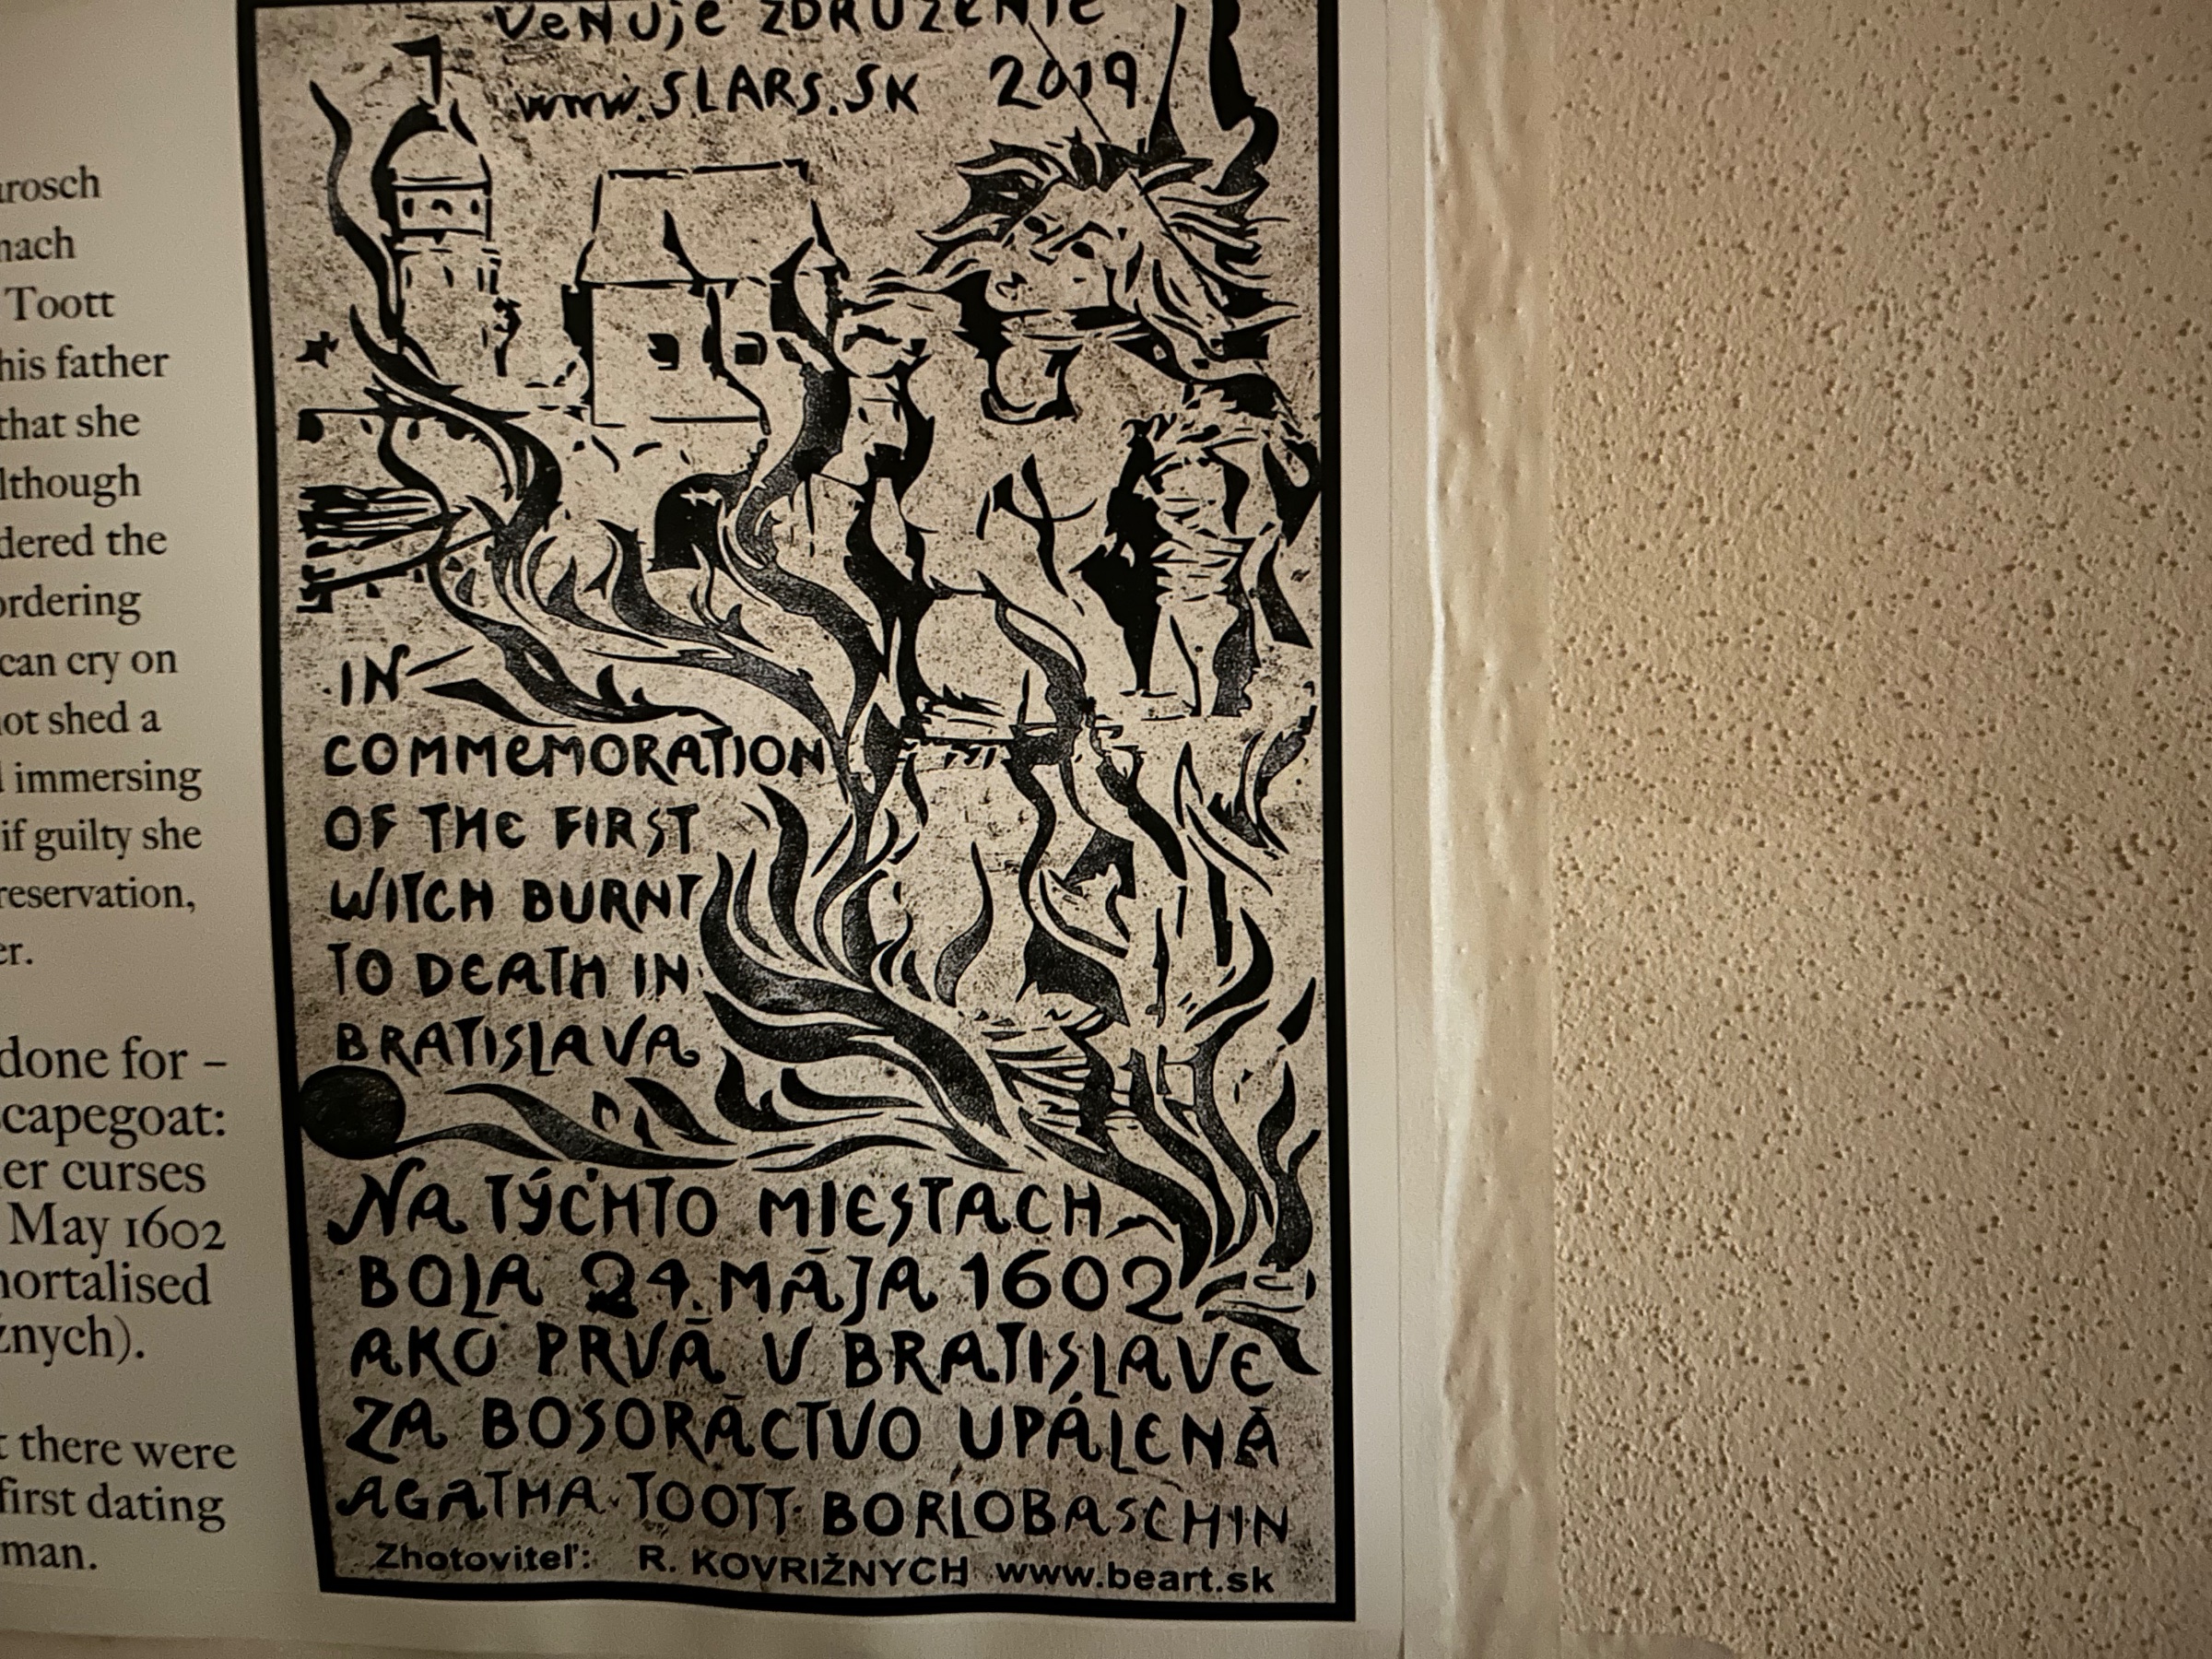 Toott
his father
that she
the
can cry on
shed a
immersing
if guilty she
done for –
curses
May 1602
there were
first dating
man.
VENUJE ZDRUŽENIE
www.SLARS.SK 2019
IN
COMMEMORATION
OF THE FIRST
WITCH BURNT
TO DEATH IN
BRATISLAVA
NA TÝCHTO MIESTACH
BOLA 24. MÁJA 1602
AKO PRVÁ V BRATISLAVE
ZA BOSORÁCTVO UPÁLENÁ
AGATHA TOOTT BORLOBASCHIN
Zhotoviteľ: R. KOVRIŽNYCH www.beart.sk